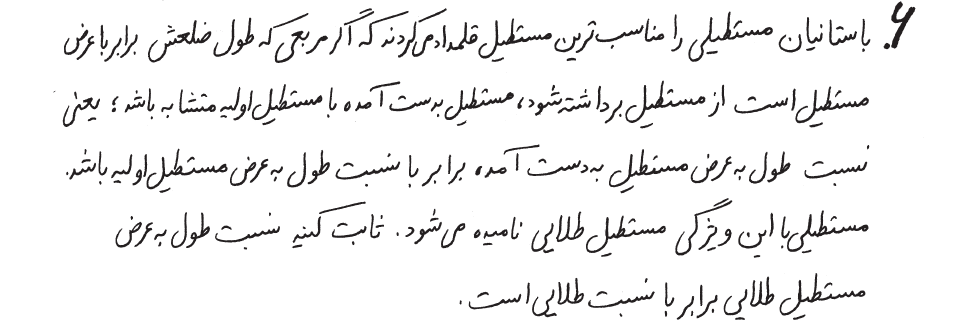 ۶. باستانیان مستطیلی را مناسب‌ترین مستطیل قلمداد می‌کردند که اگر مربعی که طول ضلعش برابر با عرض
مستطیل است از مستطیل برداشته شود، مستطیل بدست آمده با مستطیل اولیه متشابه باشد؛ یعنی
نسبت طول به عرض مستطیل به‌دست آمده، برابر با نسبت طول به عرض مستطیل اولیه باشد.
مستطیلی با این ویژگی مستطیل طلایی نامیده می‌شود. ثابت کنید نسبت طول به عرض
مستطیل طلایی برابر با نسبت طلایی است.